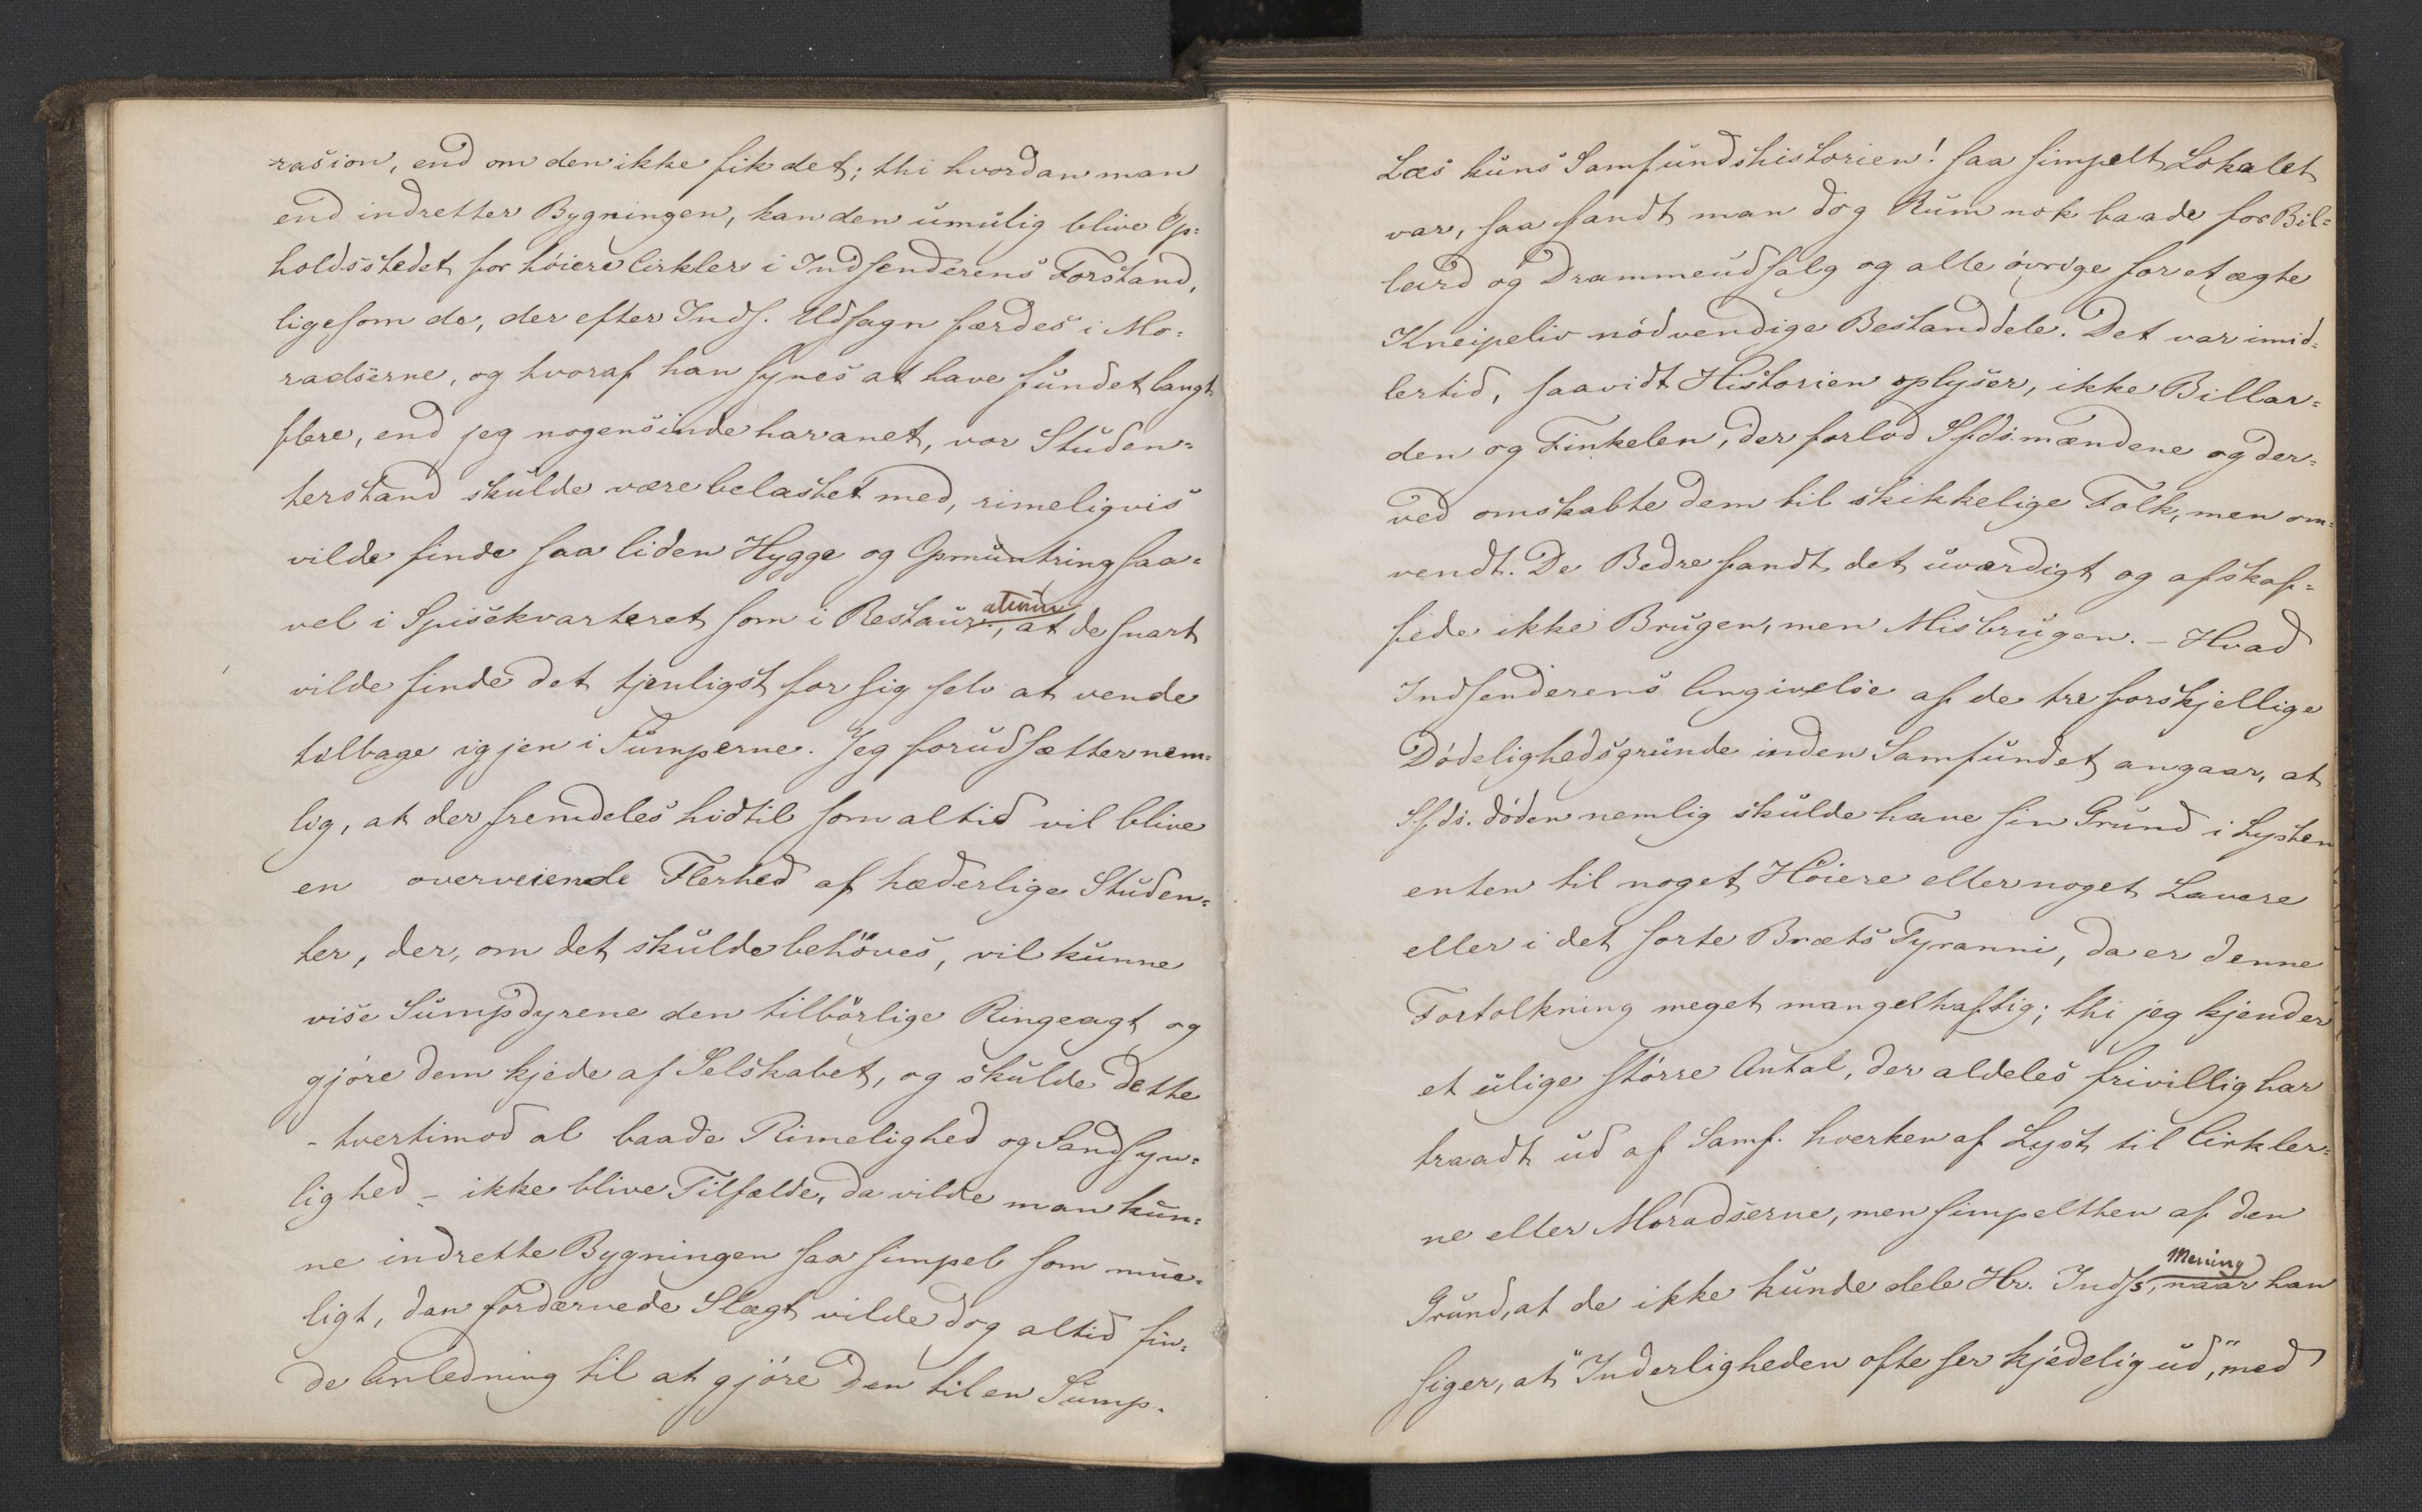 rasion, end om den ikke fik det; thi hvordan man
end indretter Bygningen, kan den umulig blive Op=
holdsstedet for høiere Cirkler i Indsenderens Forstand,
ligesom de, der efter Inds. Udsagn færdes i Mo=
radserne, og hvoraf han synes at have fundet langt
flere, end jeg nogensinde har anet, vor Studen=
terstand skulde være belastet med, rimeligvis
vilde finde saa liden Hygge og Opmuntring saa=
vel i Spisekvarteret som i Restaur., at de snart
vilde finde det tjenligst for sig selv at vende
tilbage igjen i Sumperne. Jeg forudsætter nem=
lig, at der fremdeles hidtil som altid vil blive
en overveiende Flerhed af hæderlige Studen=
ter, der, om det skulde behöves, vil kunne
vise Sumpdyrene den tilbörlige Ringeagt og
gjöre dem kjede af Selskabet, og skulde dette
- tvertimod al baade Rimelighed og Sandsyn=
lighed - ikke blive Tilfælde, da vilde man kun=
ne indrette Bygningen saa simpel som mue=
ligt, den fordærvede Slægt vilde dog altid fin=
de Anledning til at gjöre den til en Sump.
Læs kuns Samfundshistorien! saa simpelt Lokalet
var, saa fandt man dog Rum nok baade for Bil=
lard og Drammeudsalg og alle övrige for et ægte
Kneipeliv nödvendige Bestanddele. Det var imid=
lertid, saavidt Historien oplyser, ikke Billar=
den og Finkelen, der forlod Sfds.mændene og der=
ved omskabte dem til skikkelige Folk, men om=
vendt. De Bedre fandt det uværdigt og afskaf=
fede ikke Brugen, men Misbrugen. - Hvad
Indsenderens Angivelse af de tre forskjellige
Dödelighedsgrunde inden Samfundet angaar, at
Sfds. döden nemlig skulde have sin Grund i Lysten
enten til noget Höiere eller noget Lavere
eller i det sorte Bræts Tyranni, da er denne
Fortolkning meget mangelhaftig; thi jeg kjender
et ulige större Antal, der aldeles frivillig har
traadt ud af Samf. hverken af Lyst til Cirkler=
ne eller Moradserne, men simpelthen af den
Mening
Grund, at de ikke kunde dele Hr. Inds's, naar han
siger, at "Inderligheden ofte ser kjedelig ud", med